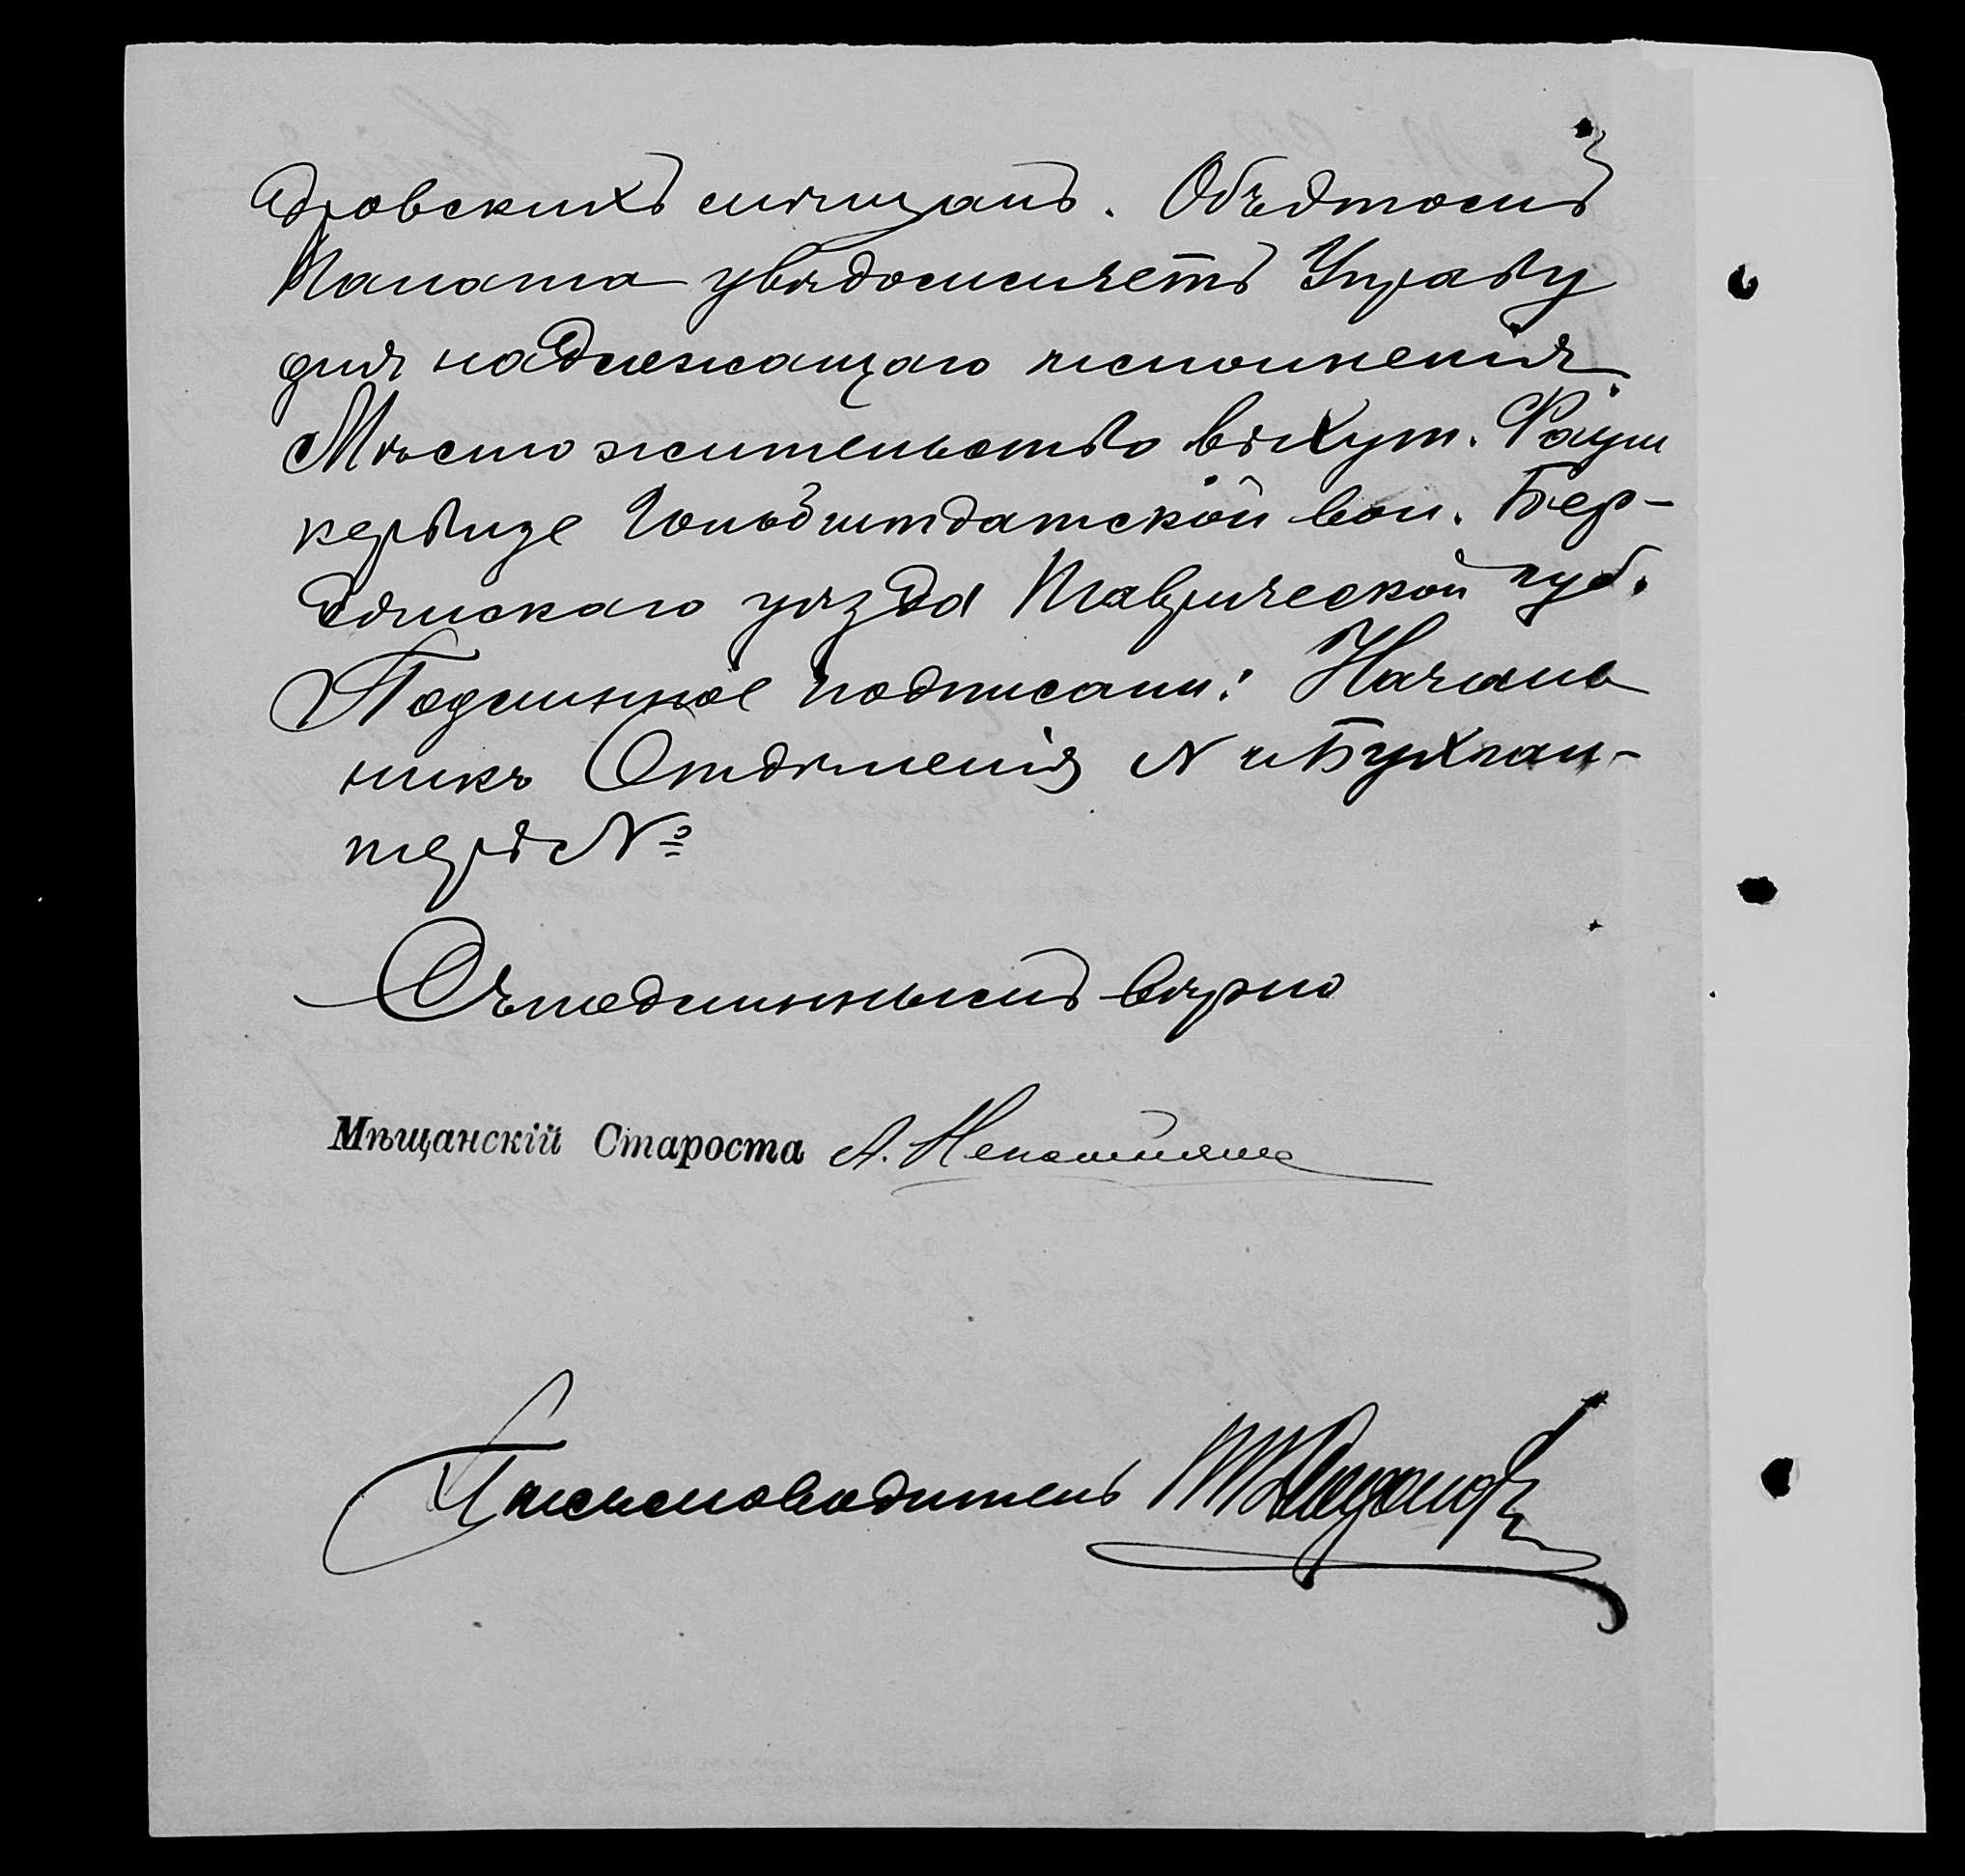 дровскихъ мѣщанъ. Объ этомъ
Палата увѣдомляетъ Управу
для надлежащаго исполненія.
Мѣсто жительство въ хут.
Гольдштдатской вол. Бер-
дянскаго уѣзда Таврической губ.
Подлинное подписали: Началь
никъ Отдѣленія N и Бухгал-
теръ №
Съ подлиннымъ вѣрно
Мѣщанскій Староста А.
Письмоводитель